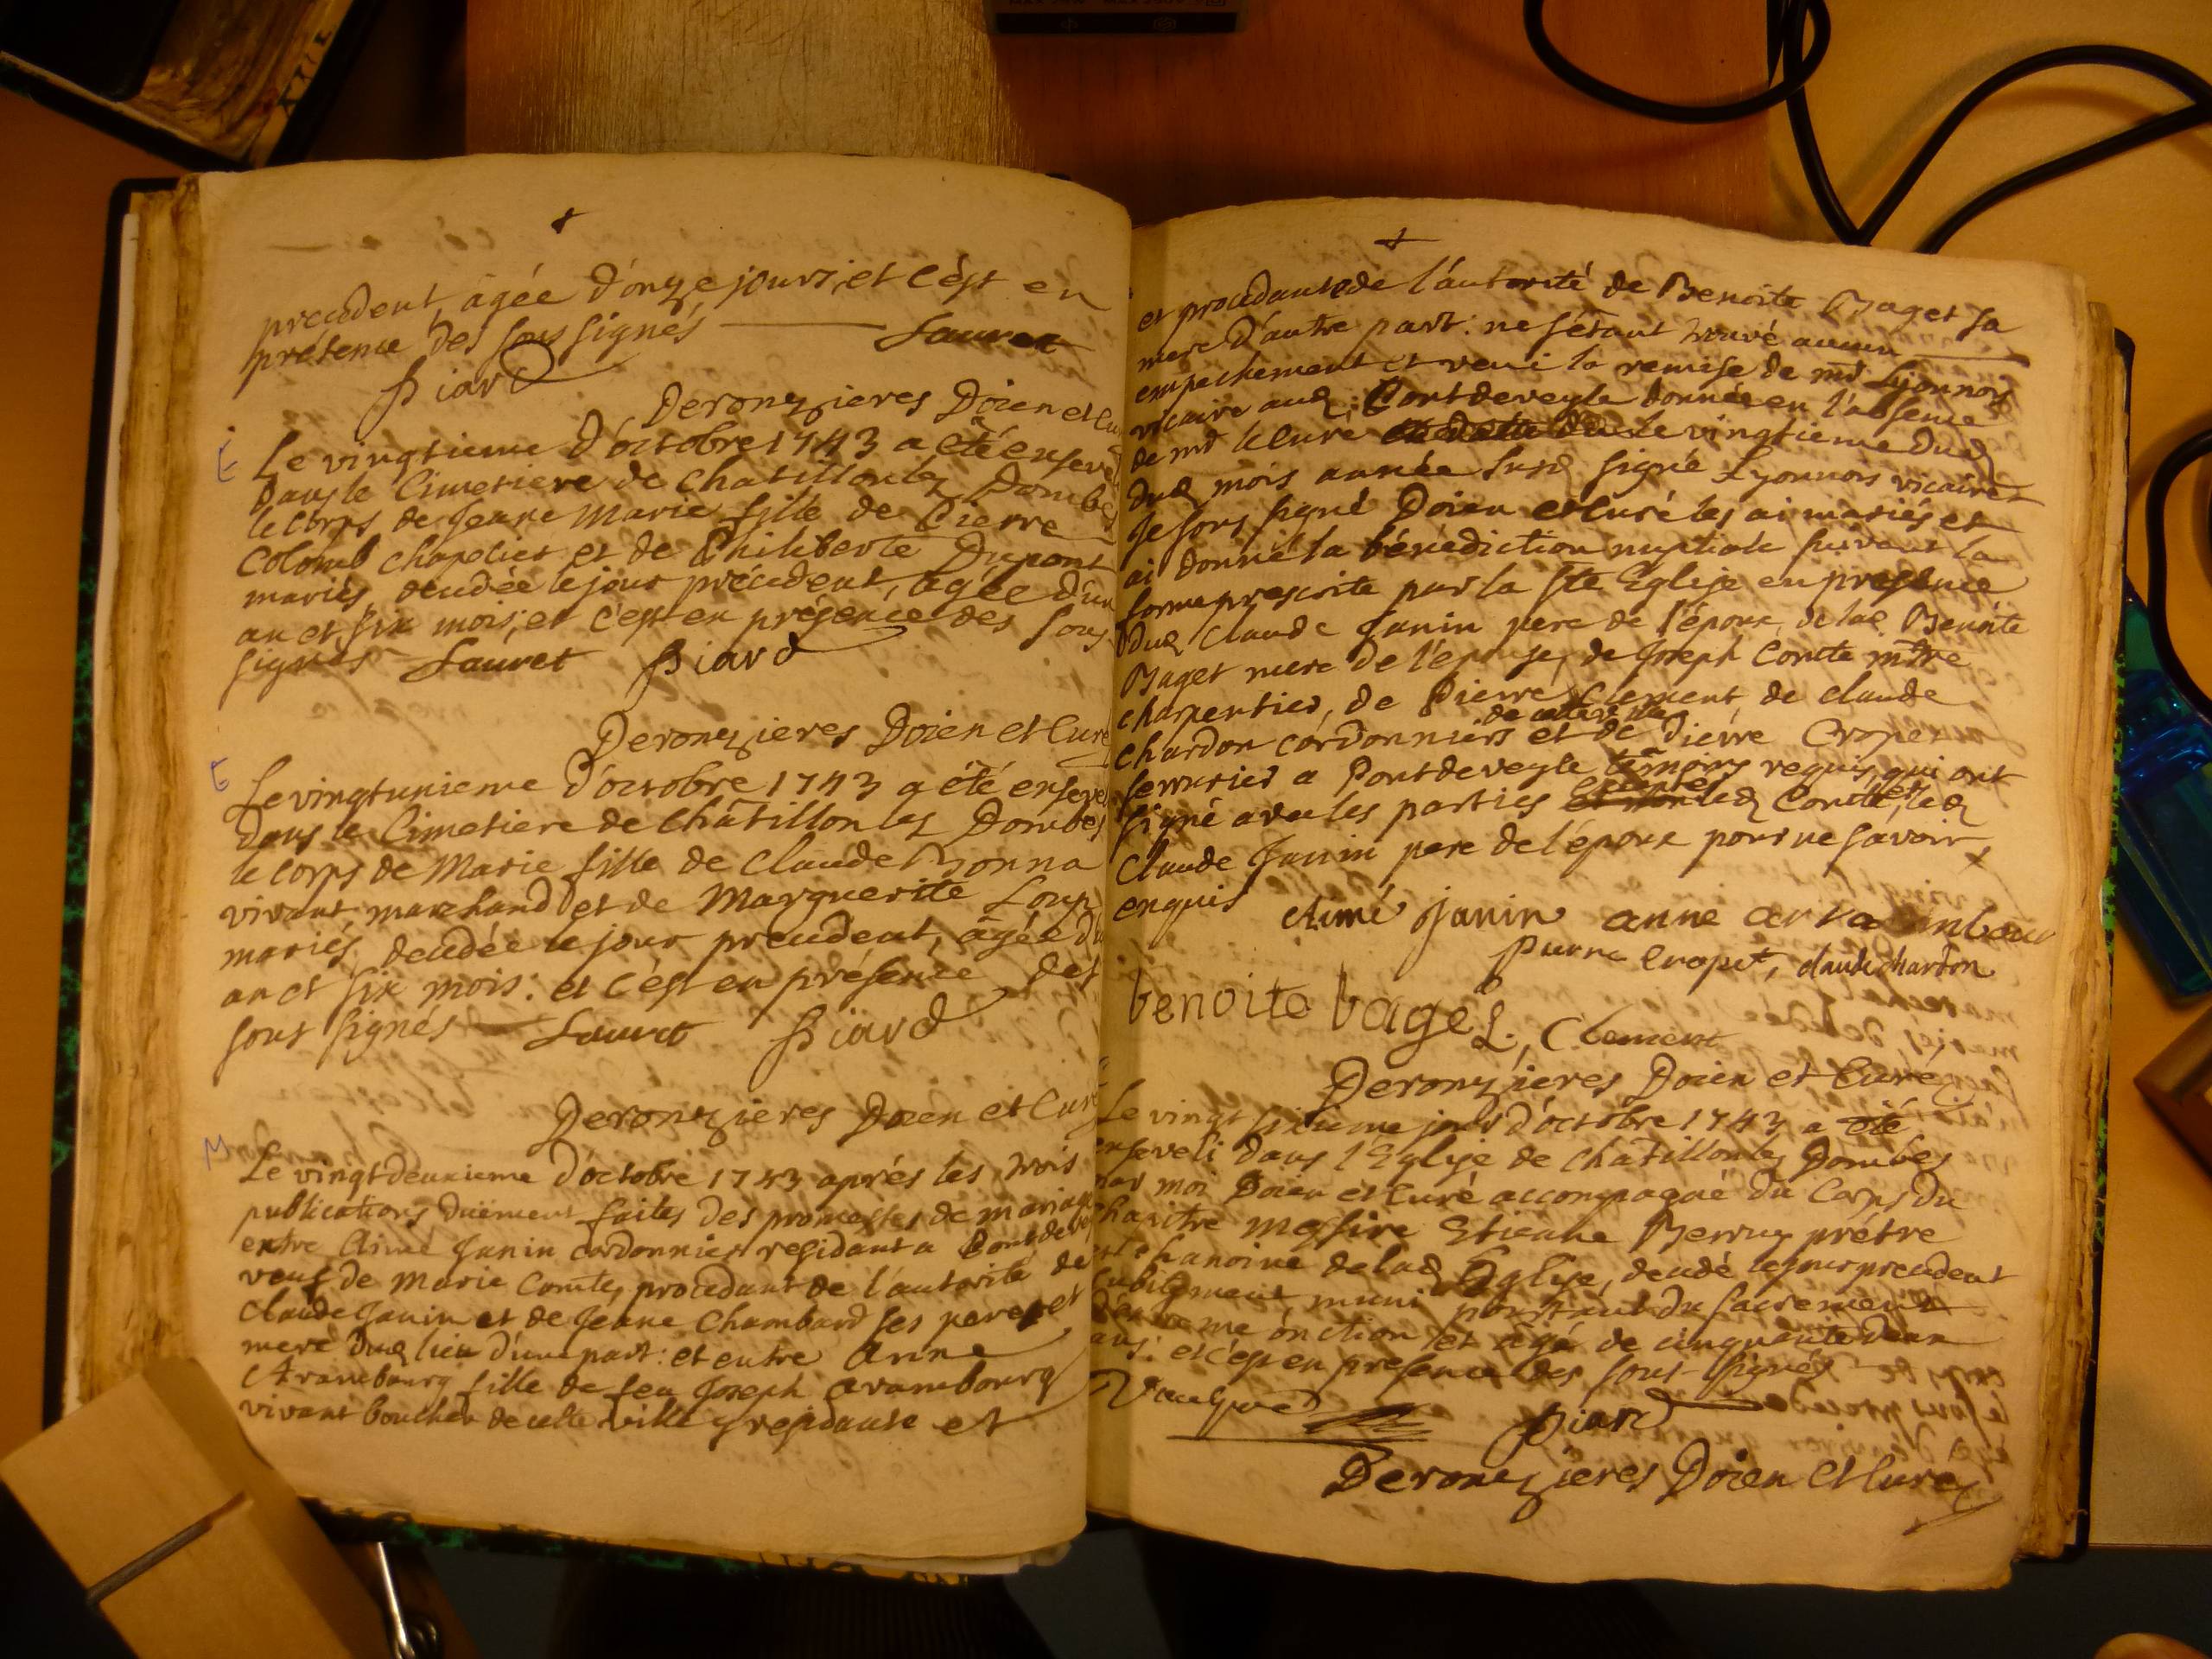 precedent, agée d'onze jours, et c'est en
présence des sous signés Lauret
Piard
Deronzieres Doien et Cu
E Le vingtieme d'octobre 1743 a été enseve
dans le Cimetiere de Chatillon lez Dombes
le corps de Jeane Marie fille de Pierre
Colomb chapelier et de Philiberte Dupont
mariés, decedée le jour précedent, agée d'un
an et six mois, et c'est en présence des sous
signés Lauret Piard
Deronzieres Doien et Curé
E Le vingtunieme d'octobre 1743 a été enseve
dans le Cimetiere de Châtillon lez Dombes
le corps de Marie fille de Claude Bonna
vivant marchand et de Marguerite Loup
mariés, decedée le jour precedent, âgée d'u
an et six mois: et c'est en présence des
sous signés Lauret Piard
Deronzieres Doien et Curé
M Le vingtdeuxieme d'octobre 1743 aprés les trois
publications duëment faites des promesses de mariage
entre Aimé Janin cordonnier residant a Pontdevey
veuf de Marie Comte, procedant de l'autorité de
Claude Janin et de Jeane Chambard ses pere et
mere dud lieu d'une part: et entre Anne
Arambourg fille de feu Joseph Arambourg
vivant boucher de cette ville y residante et
et procedante de l'autorité de Benoite Baget sa
mere d'autre part: ne s'étant trouvé aucun
empechement et veu la remise de mr Lyonnois
vicaire aud. Pontdeveyle donnée en l'absence
de mr le Curé le vingtieme dud
dud mois année susd signé Lyonnois vicaire
Je sous signé Doien et Curé les ai mariés et
ai donné la bénediction nuptiale suivant la
forme prescrite par la ste Eglise en presence
dud Claude Janin pere de l'époux, de lad Benoite
Baget mere de l'épouse, de Joseph Comte mtre
charpentier, de Pierre Clement, de Claude
de cette ville
Chardon cordonniers et de Pierre Cropet
serrurier a Pontdeveyle témoins requis, qui ont
signé avec les parties led Comte, et led
Claude Janin pere de l'époux pour ne savoir,
enquis aimé janin anne
pierre cropet, claude chardon
benoite baget, Clement
Deronzieres Doien et Curé
Le vingt sixieme jour d'octobre 1743 a été
enseveli dans l'Eglise de Chatillon lez Dombes
par moi Doien et Curé accompagné du Corps du
Chapitre messire Etienne prêtre
et chanoine de lad Eglise, decedé le jour precedent
subitement, muni pourtant du sacrement
d'extreme onction et âgé de cinquante deux
ans: et c'est en presence des sous-signés
Piard
Deronzieres Doien et Curé